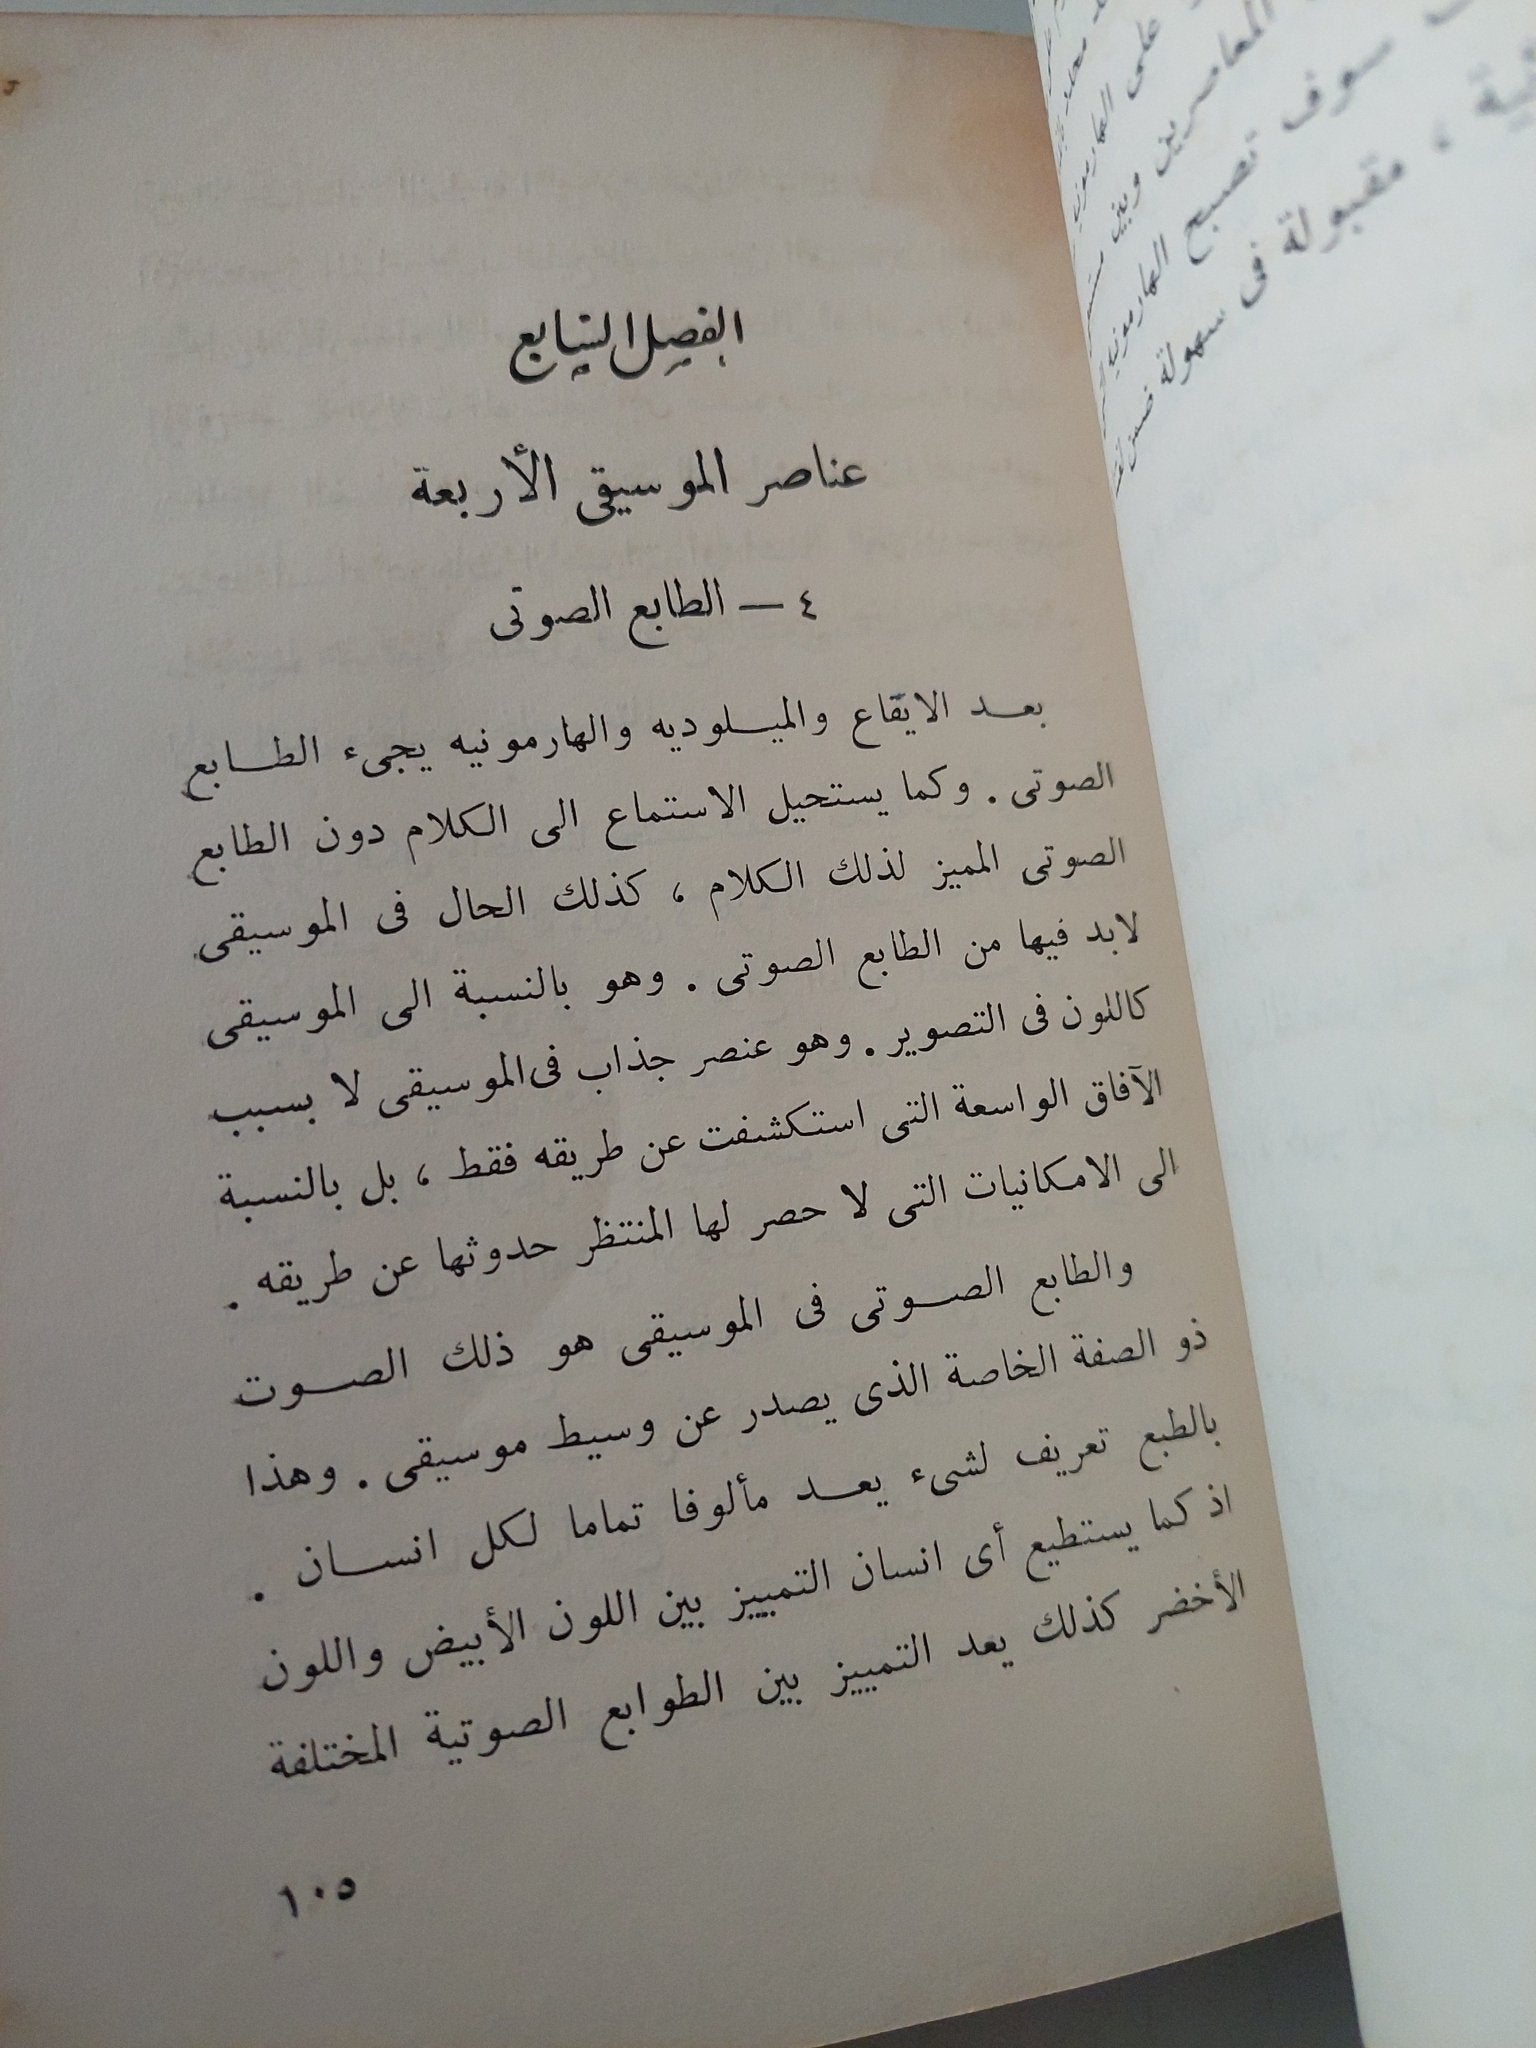 الفصل السابع
عناصر الموسيقى الأربعة
٤ — الطابع الصوتى
بعد الايقاع والميلوديه والهارمونيه يجىء الطابع
الصوتى . وكما يستحيل الاستماع الى الكلام دون الطابع
الصوتى المميز لذلك الكلام ، كذلك الحال فى الموسيقى
لابد فيها من الطابع الصوتى . وهو بالنسبة الى الموسيقى
كاللون فى التصوير . وهو عنصر جذاب فى الموسيقى لا بسبب
الآفاق الواسعة التى استكشفت عن طريقه فقط ، بل بالنسبة
الى الامكانيات التى لا حصر لها المنتظر حدوثها عن طريقه .
والطابع الصوتى فى الموسيقى هو ذلك الصوت
ذو الصفة الخاصة الذى يصدر عن وسيط موسيقى . وهذا
بالطبع تعريف لشىء يعد مألوفا تماما لكل انسان .
اذ كما يستطيع أى انسان التمييز بين اللون الأبيض واللون
الأخضر كذلك يعد التمييز بين الطوابع الصوتية المختلفة
١٠٥
على الهارمونيه
المعاصرين وبين
سوف تصبح الهارمونيه
، مقبولة فى سهولة ضمن